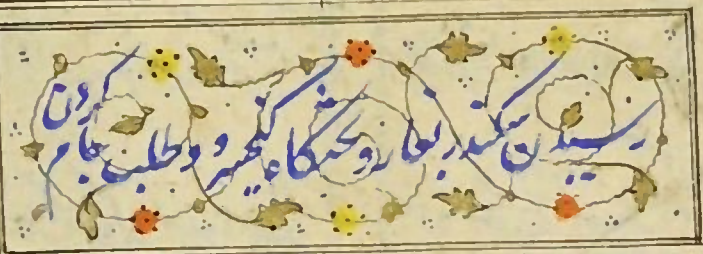 رسیدن سکندر بغار و تختگاه کیخسرو و طلب جام کردن